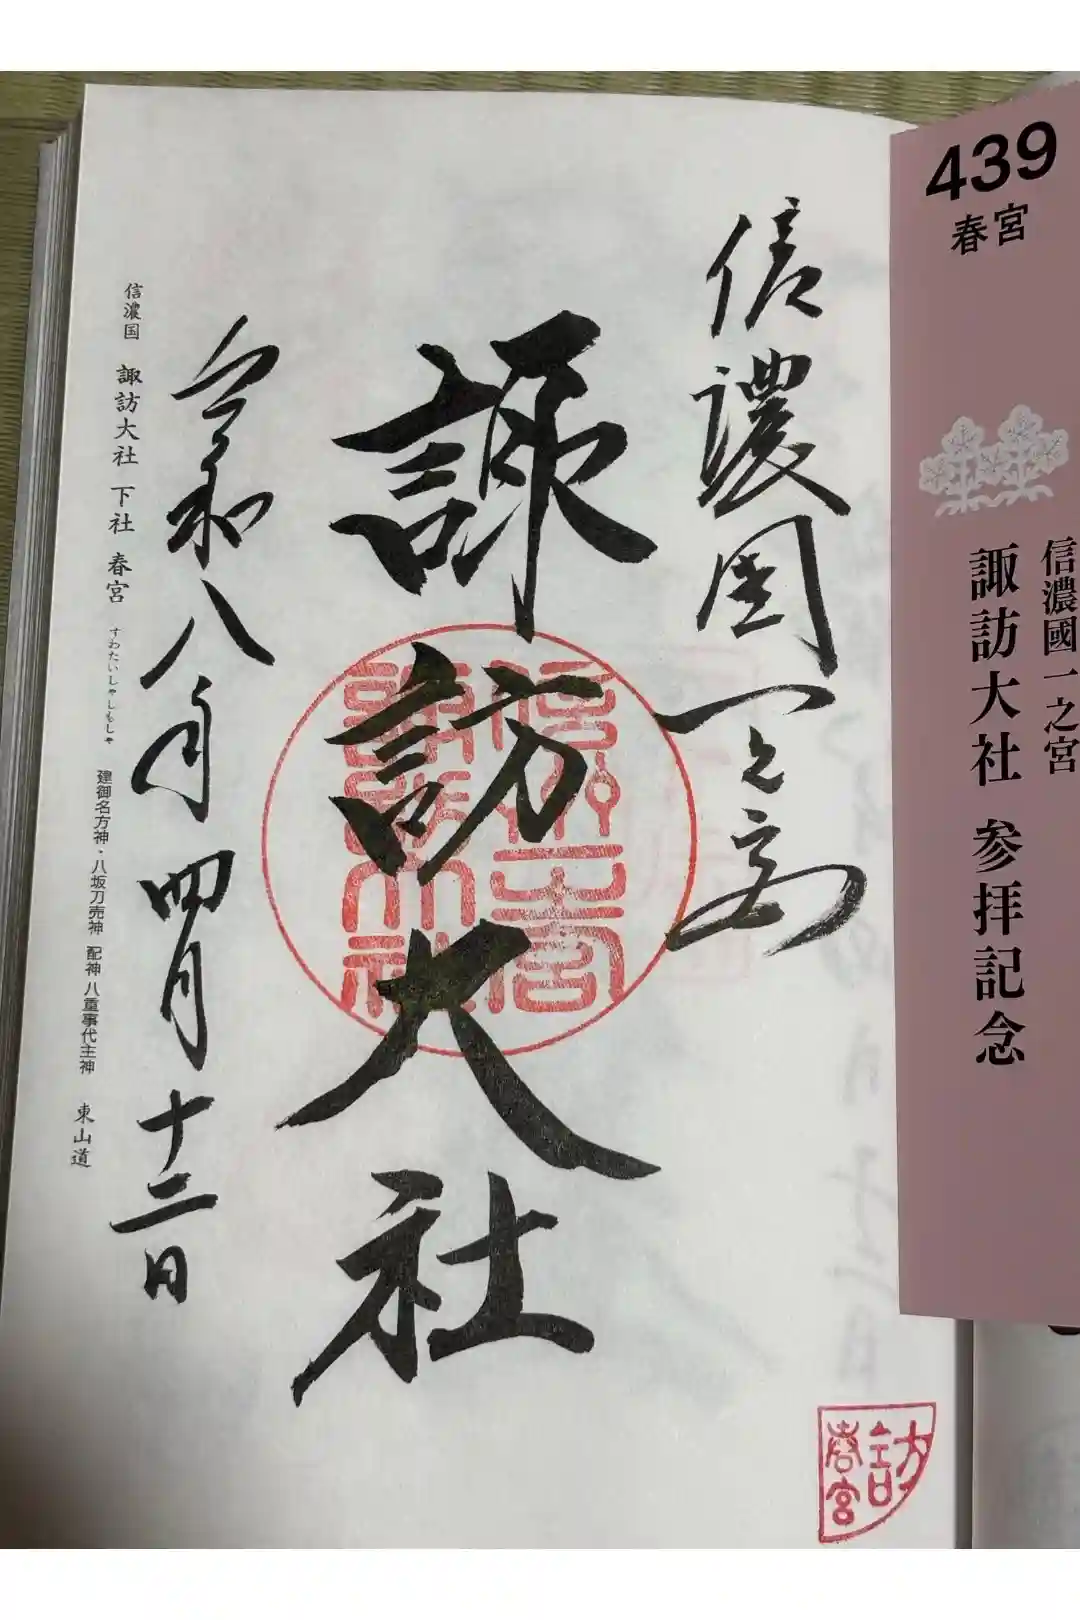 439
春宮
信濃國一之宮
諏訪大社 参拝記念
信濃国一之宮
諏訪大社
令和八年四月十二日
信州一之宮
諏訪大社
信濃国 諏訪大社 下社 春宮 すわたいしゃしもしゃ 建御名方神・八坂刀売神 配神 八重事代主神 東山道
訪
春宮